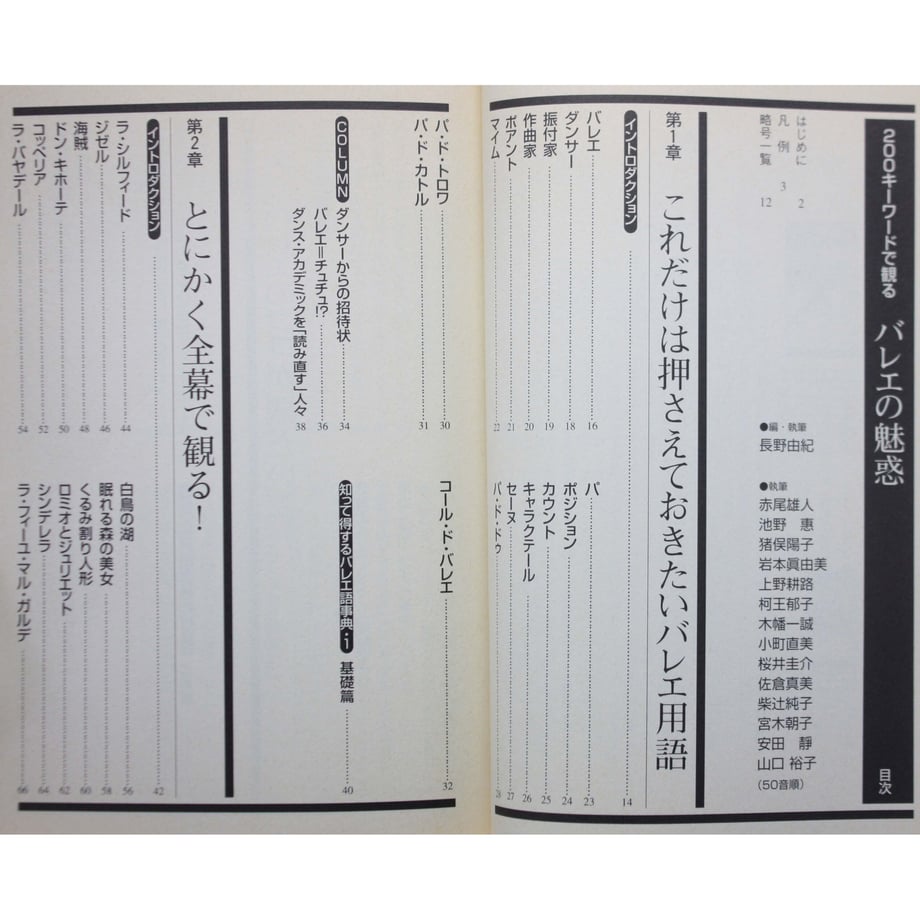 200キーワードで観る バレエの魅惑 目次
はじめに 2
凡 例 3
略号一覧 12
●編・執筆
長野由紀
●執筆
赤尾雄人
池野 恵
猪俣陽子
岩本眞由美
上野耕路
柯王郁子
木幡一誠
小町直美
桜井圭介
佐倉真美
柴辻純子
宮木朝子
安田 靜
山口 裕子
(50音順)
第1章 これだけは押さえておきたいバレエ用語
イントロダクション 14
バレエ 16
ダンサー 18
振付家 19
作曲家 20
ポアント 21
マイム 22
パ 23
ポジション 24
カウント 25
キャラクテール 26
セーヌ 27
パ・ド・ドゥ 28
パ・ド・トロワ 30
パ・ド・カトル 31
コール・ド・バレエ 32
COLUMN
ダンサーからの招待状 34
バレエ=チュチュ!? 36
ダンス・アカデミックを「読み直す」人々 38
知って得するバレエ語事典・1 基礎篇 40
第2章 とにかく全幕で観る!
イントロダクション 42
ラ・シルフィード 44
ジゼル 46
海賊 48
ドン・キホーテ 50
コッペリア 52
ラ・バヤデール 54
白鳥の湖 56
眠れる森の美女 58
くるみ割り人形 60
ロミオとジュリエット 62
シンデレラ 64
ラ・フィーユ・マル・ガルデ 66